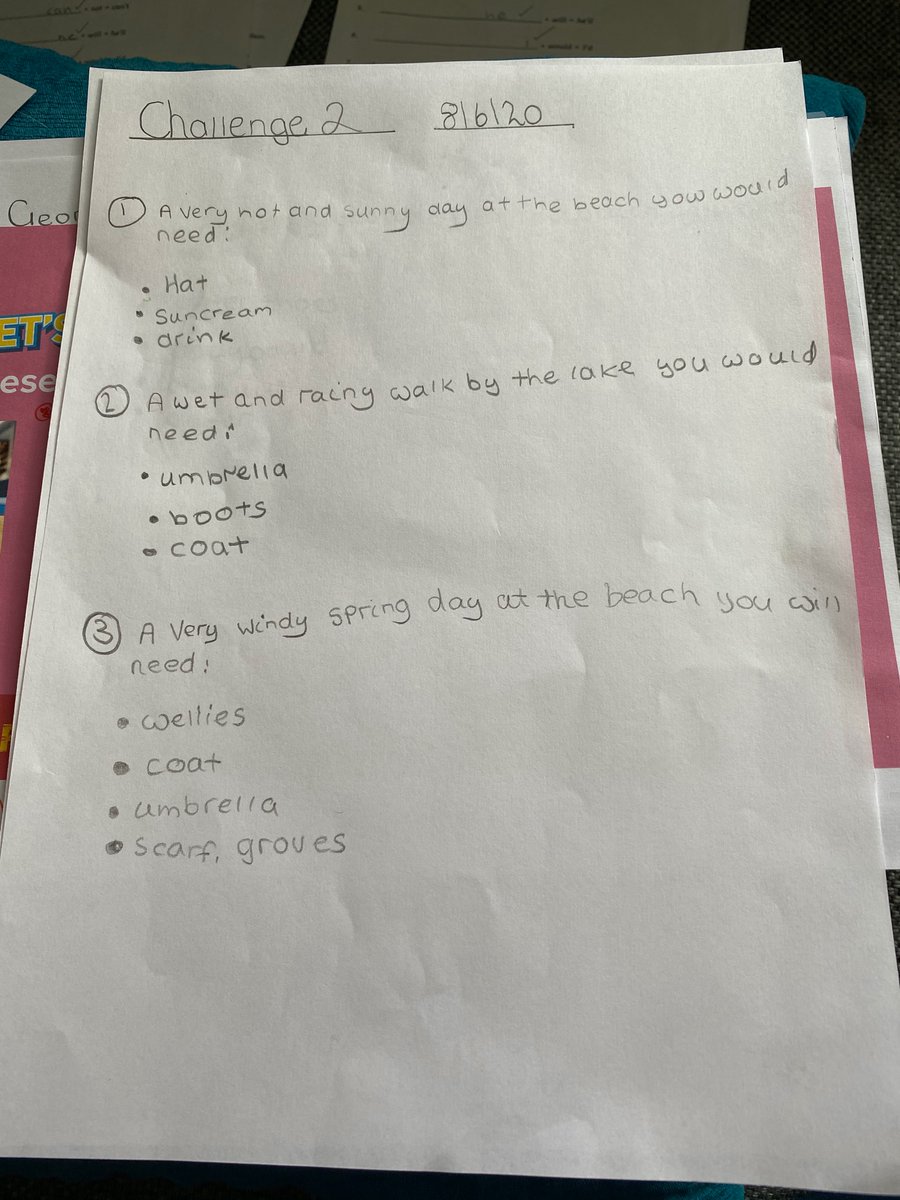 can ✓ + not = can't
he ✓ + will = he'll
he ✓ + will = he'll
I ✓ + would = I'd
Challenge 2 8/6/20
Geor
① A very hot and sunny day at the beach yow would
need:
• Hat
• suncream
• drink
ET'S
ese
② A wet and raciny walk by the lake you would
need:
• umbrella
• boots
• coat
③ A very windy spring day at the beach you will
need:
• wellies
• coat
• umbrella
• scarf, groves